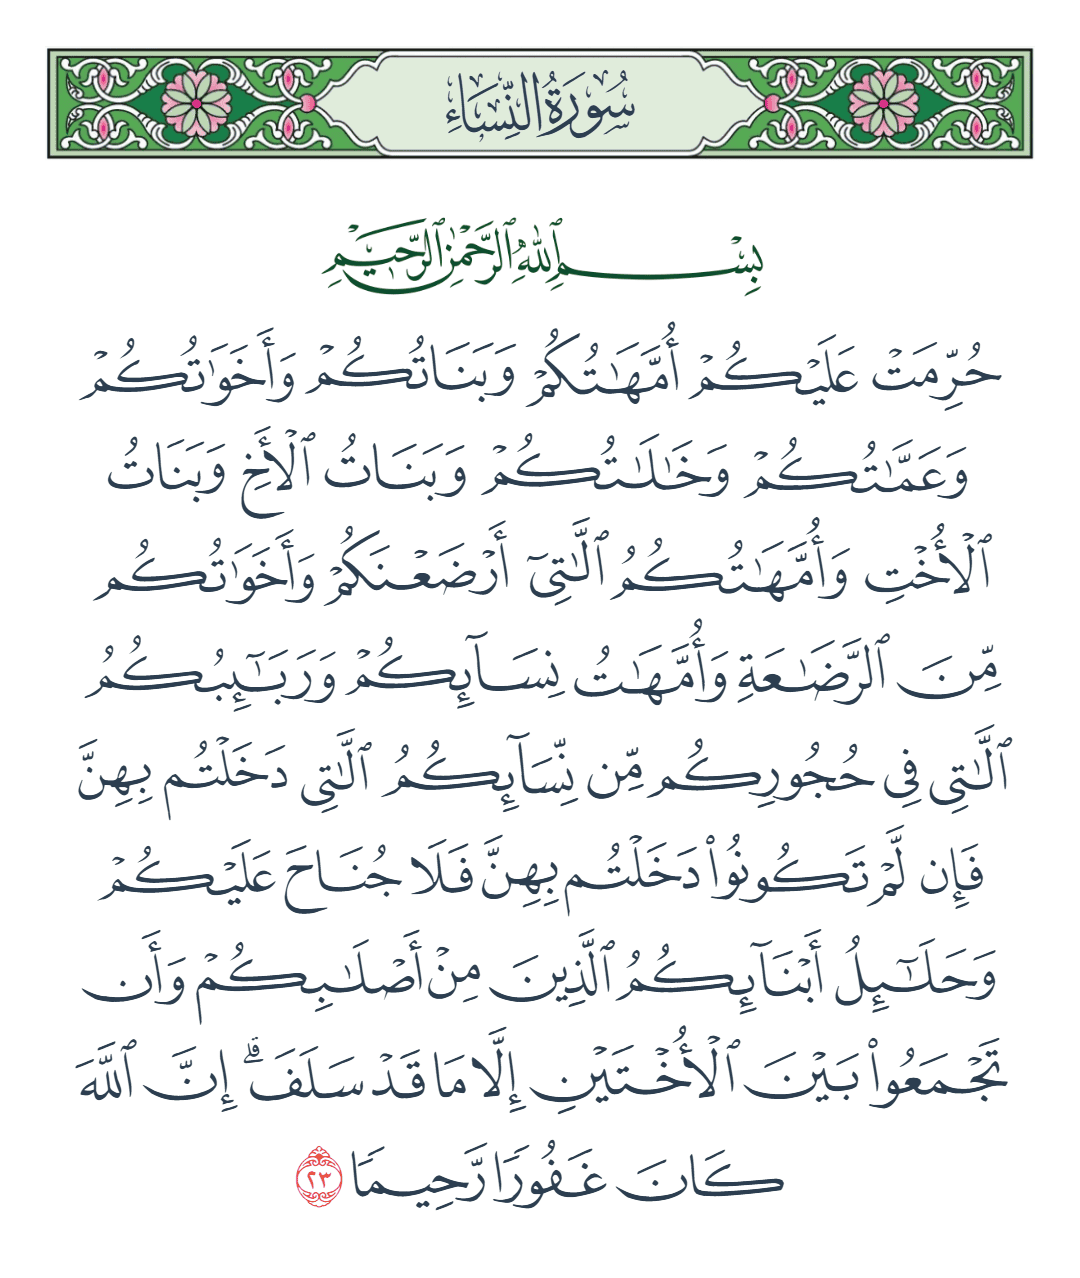 سُورَةُ النِّسَاءِ
بِسْمِ ٱللَّهِ ٱلرَّحْمَٰنِ ٱلرَّحِيمِ
حُرِّمَتْ عَلَيْكُمْ أُمَّهَٰتُكُمْ وَبَنَاتُكُمْ وَأَخَوَٰتُكُمْ
وَعَمَّٰتُكُمْ وَخَٰلَٰتُكُمْ وَبَنَاتُ ٱلْأَخِ وَبَنَاتُ
ٱلْأُخْتِ وَأُمَّهَٰتُكُمُ ٱلَّٰتِىٓ أَرْضَعْنَكُمْ وَأَخَوَٰتُكُم
مِّنَ ٱلرَّضَٰعَةِ وَأُمَّهَٰتُ نِسَآئِكُمْ وَرَبَٰٓئِبُكُمُ
ٱلَّٰتِى فِى حُجُورِكُم مِّن نِّسَآئِكُمُ ٱلَّٰتِى دَخَلْتُم بِهِنَّ
فَإِن لَّمْ تَكُونُوا۟ دَخَلْتُم بِهِنَّ فَلَا جُنَاحَ عَلَيْكُمْ
وَحَلَٰٓئِلُ أَبْنَآئِكُمُ ٱلَّذِينَ مِنْ أَصْلَٰبِكُمْ وَأَن
تَجْمَعُوا۟ بَيْنَ ٱلْأُخْتَيْنِ إِلَّا مَا قَدْ سَلَفَ ۗ إِنَّ ٱللَّهَ
كَانَ غَفُورًا رَّحِيمًا ٢٣